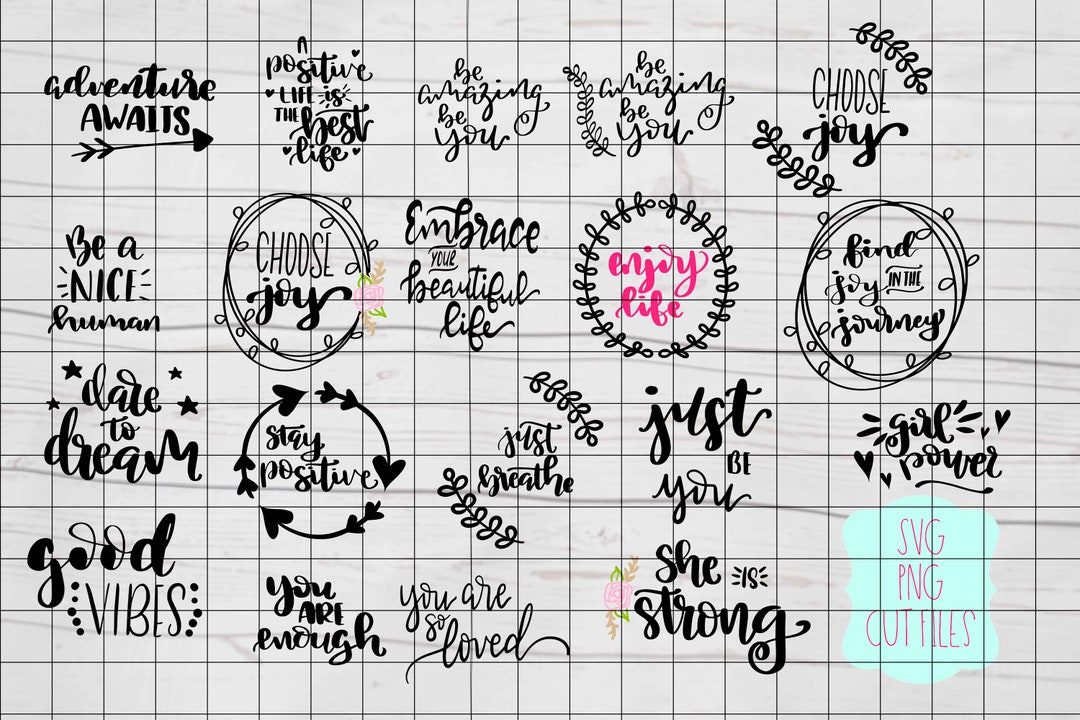 adventure
AWAITS
A
positive
LIFE is
THE best
life
be
amazing
be
you
be
amazing
be
you
CHOOSE
joy
Be a
NICE
human
CHOOSE
joy
Embrace
YOUR
beautiful
life
enjoy
life
find
joy IN THE
journey
dare
to
dream
stay
positive
just
breathe
just
BE
you
girl
power
good
VIBES
you
ARE
enough
you are
so
loved
she IS
strong
SVG
PNG
CUT FILES